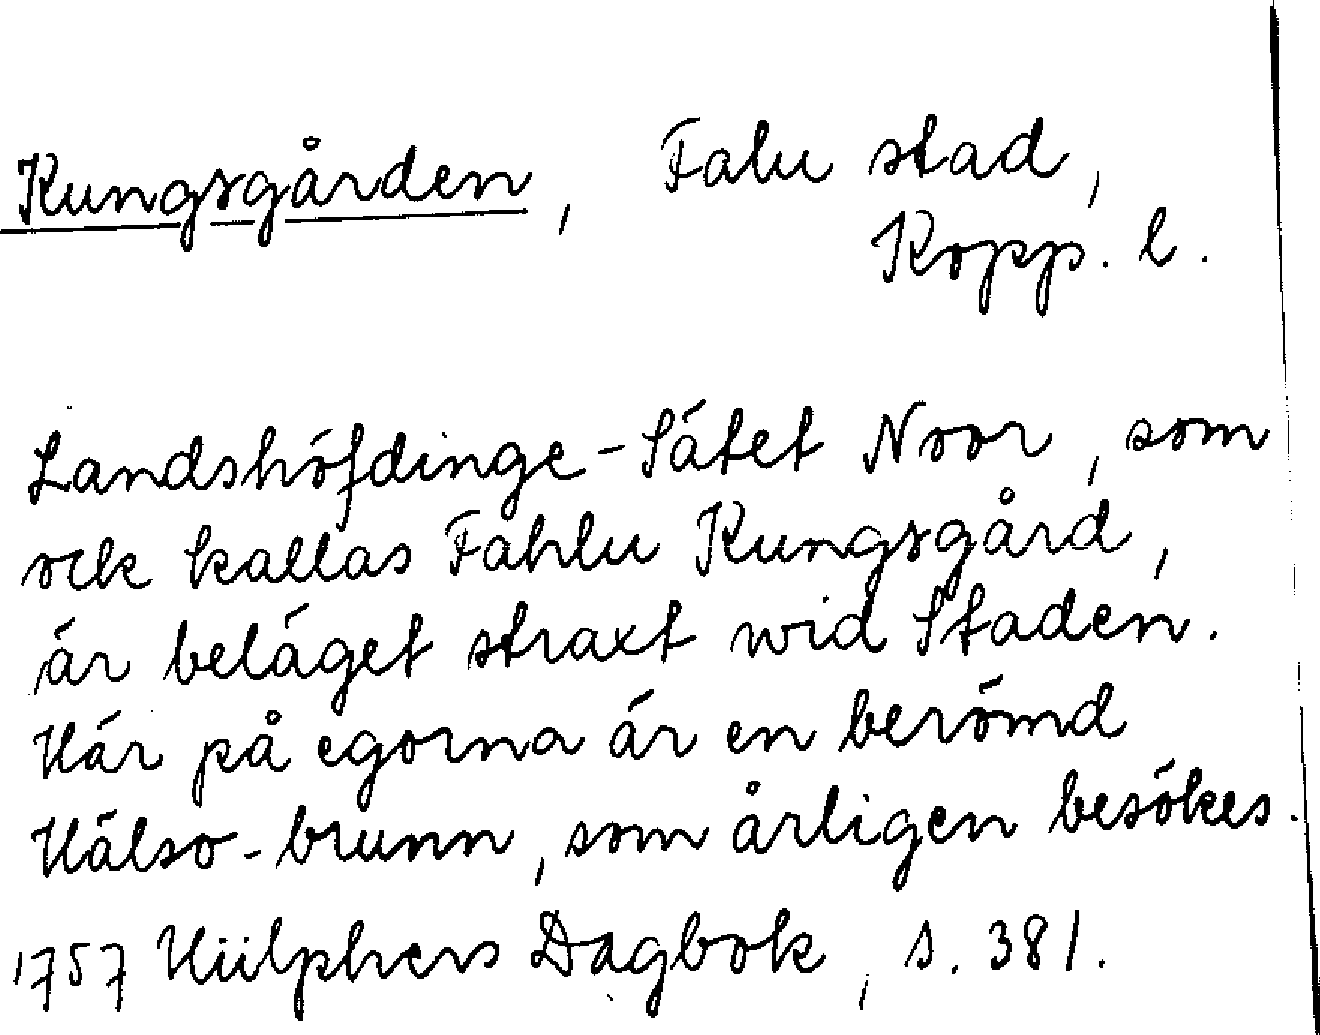 Kungsgården, Falu stad,
Kopp. l.
Landshöfdinge-Sätet Noor, som
ock kallas Fahlu Kungsgård,
är beläget straxt wid Staden.
Här på egorna är en berömd
Hälso-brunn, som årligen besökes.
1757 Hülphers Dagbok, s. 381.